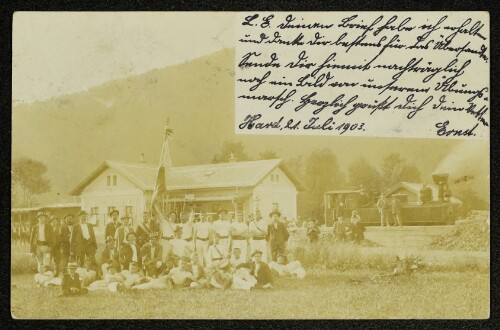 L. E. Deinen Brief habe ich erhalten
und danke dir bestens für das Übersandte.
Sende dir hiemit nachträglich
noch ein Bild von unserem Übungs-
marsch. Herzlich grüßt dich dein Vetter
Hard, 21. Juli 1903. Ernst.